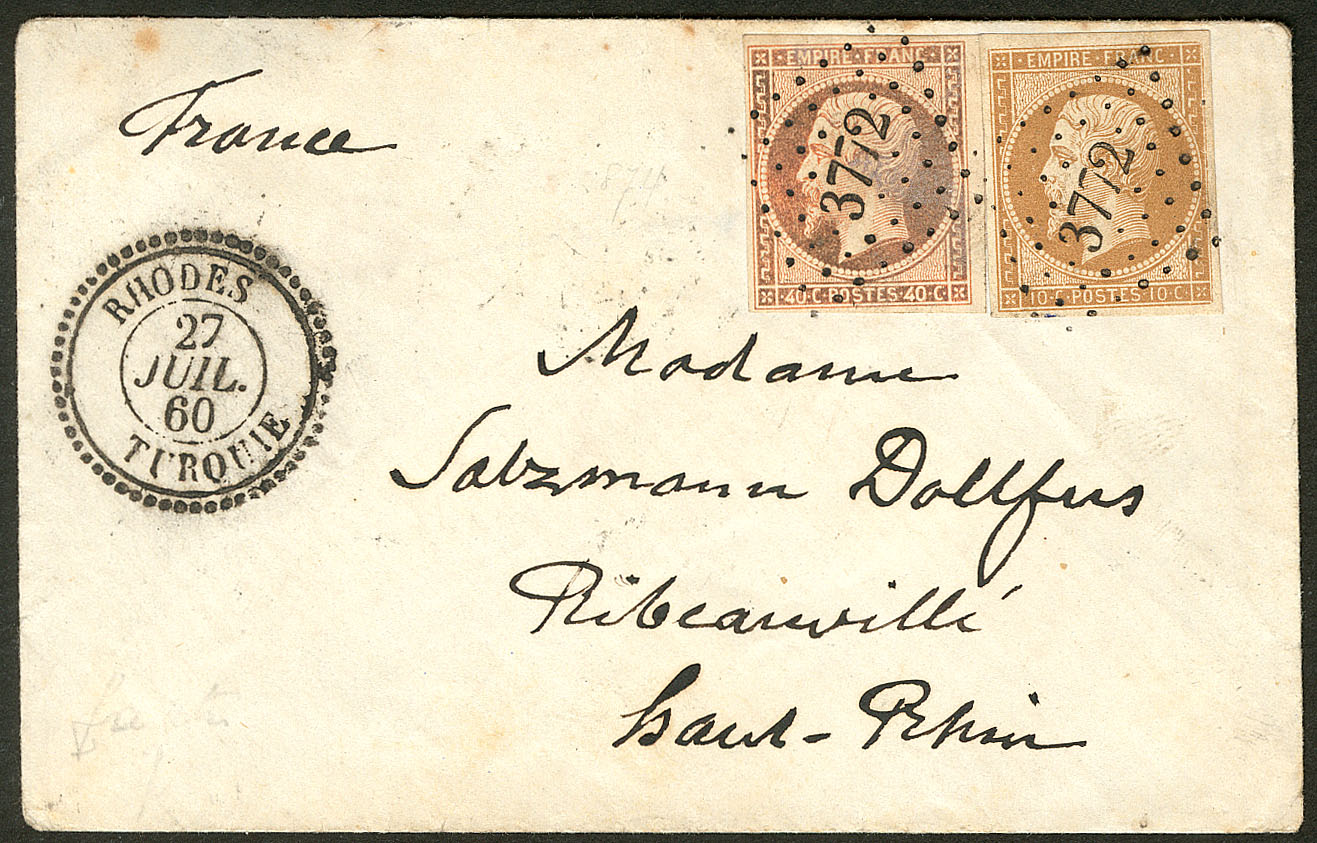 France
EMPIRE·FRANC
3772
40·C·POSTES·40·C
EMPIRE·FRANC
3772
10·C·POSTES 10·C
874
RHODES
27
JUIL.
60
TURQUIE
Madame
Salzmann Dollfus
Ribeauvillé
haut-Rhin